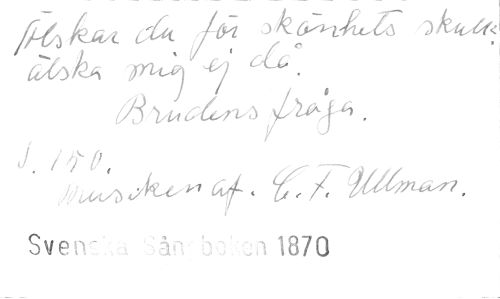 Älskar du för skönhets skull:
älska mig ej då.
Brudens fråga.
S. 150.
Musiken af. C. F. Ullman.
Svenska Sångboken 1870